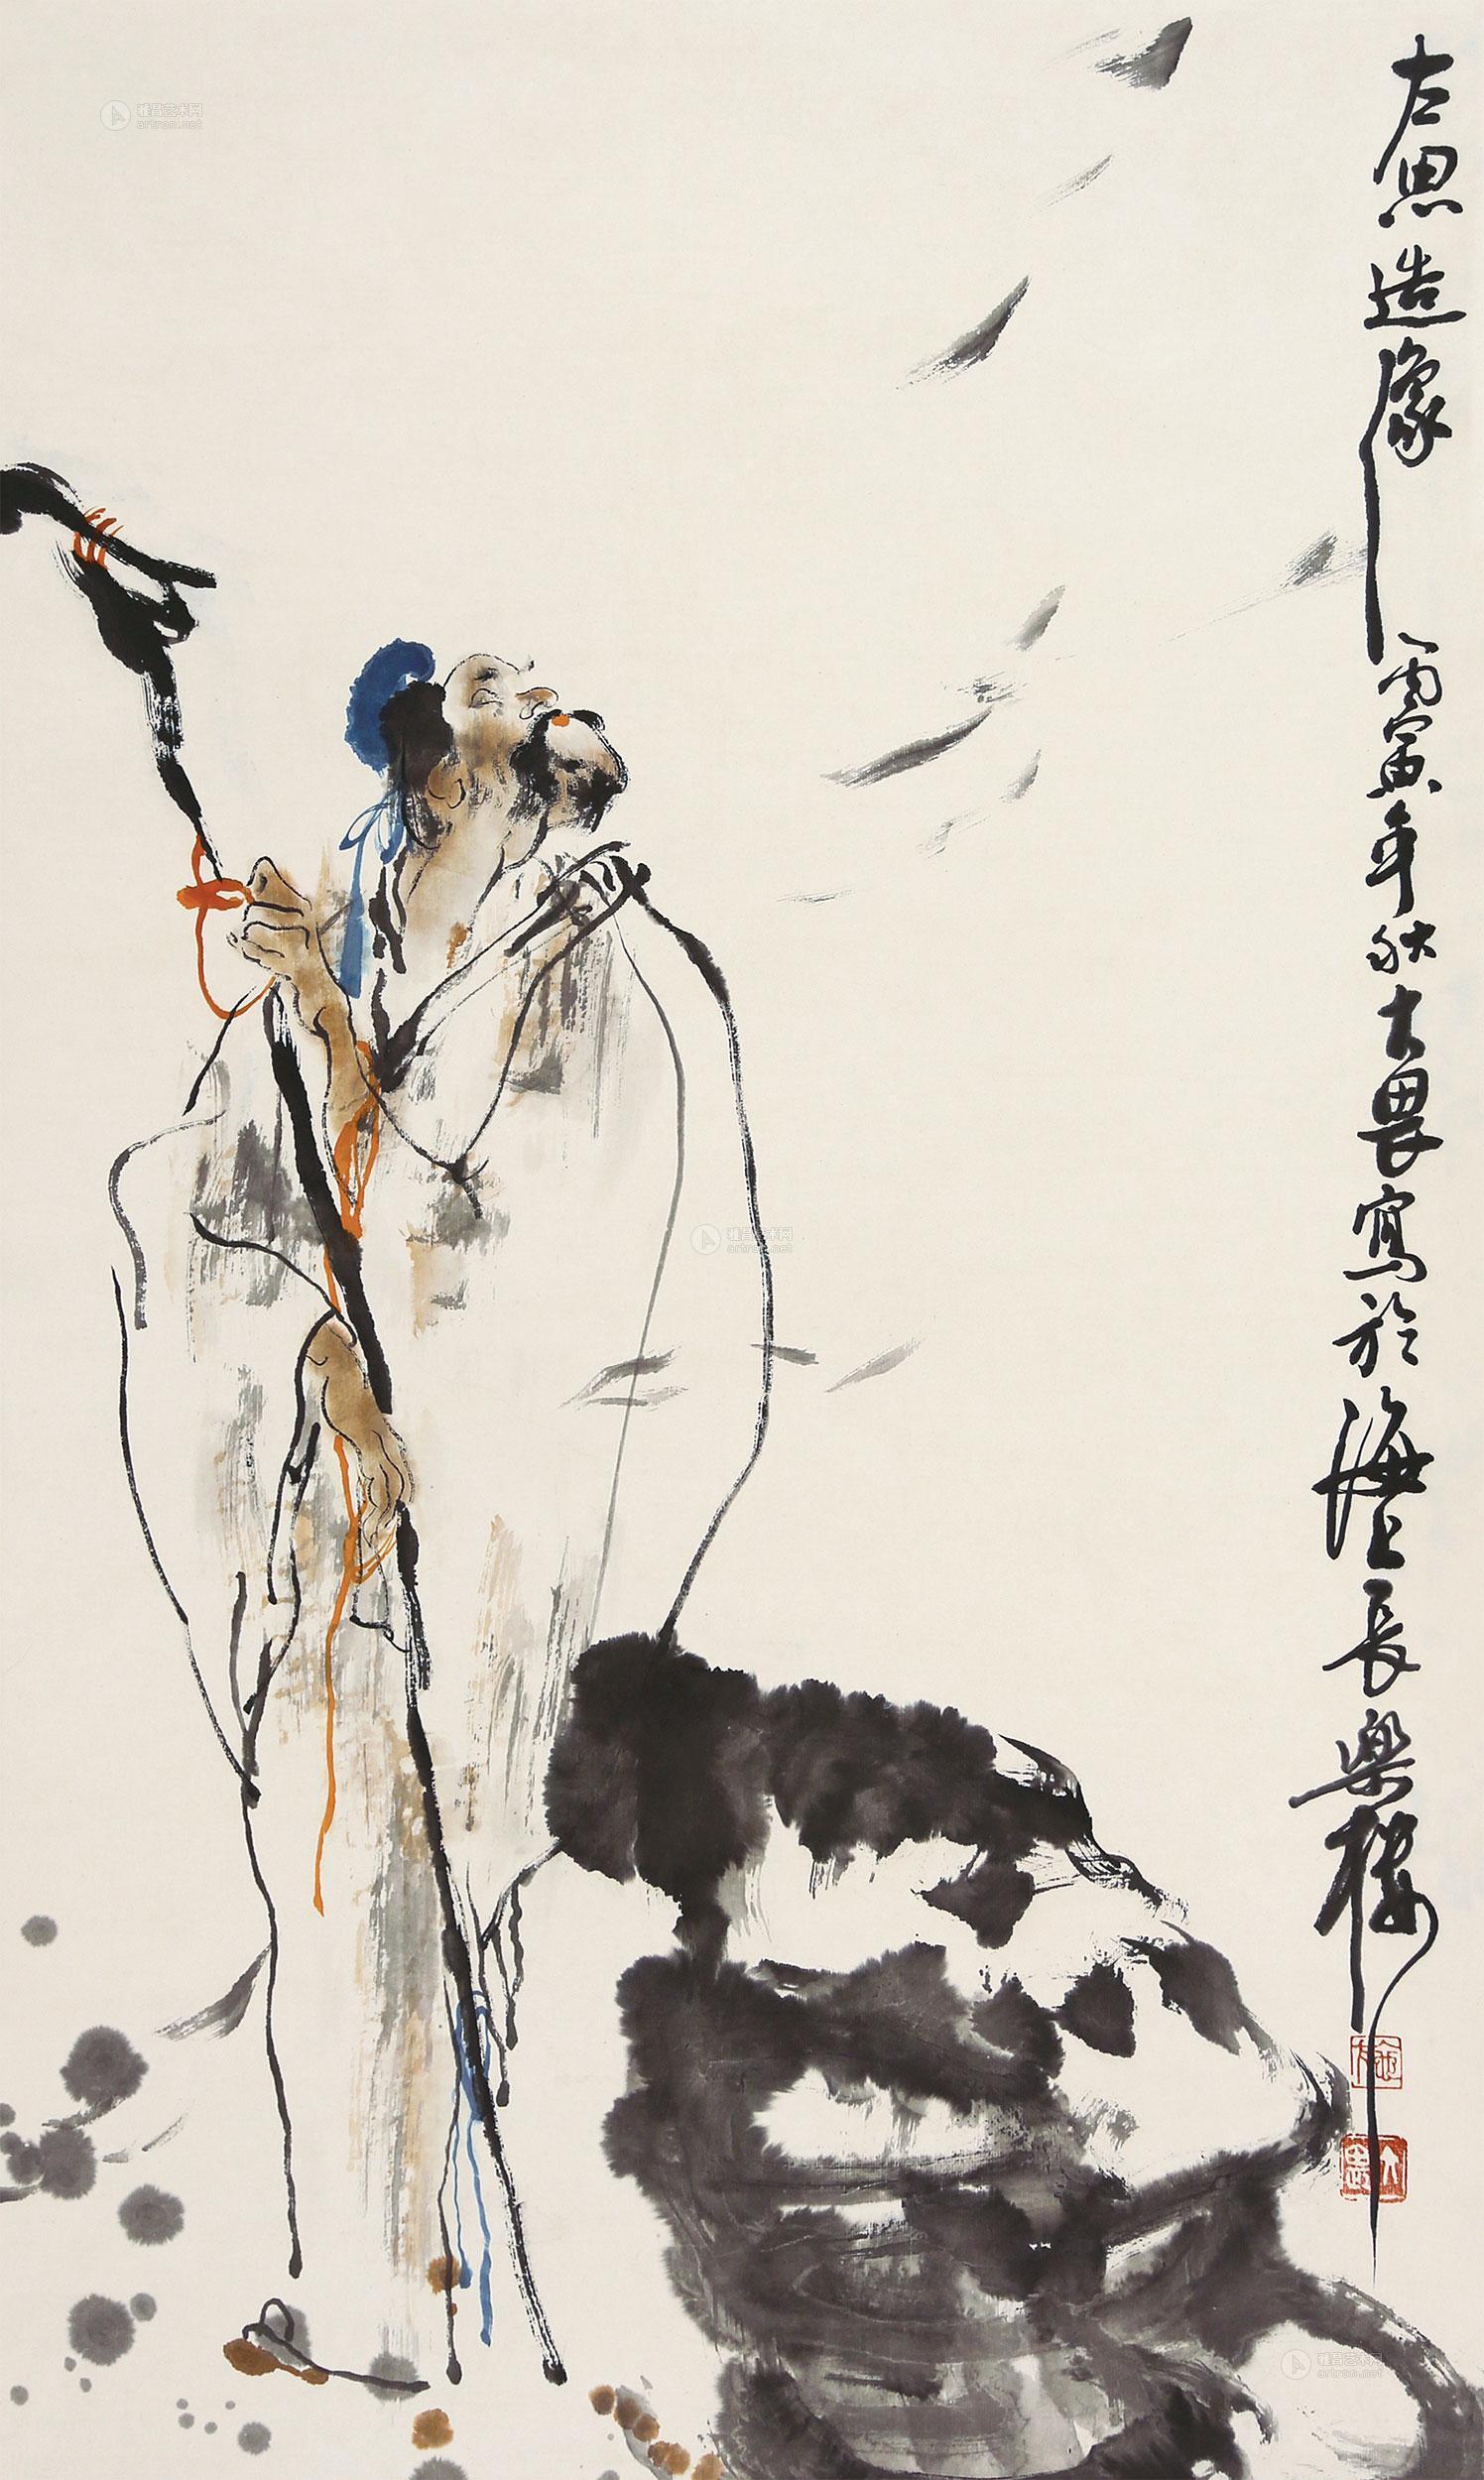 左思造像
丙寅年秋大畏寫於海上長樂樓
施
大畏
雅昌艺术网
artron.net
雅昌艺术网
artron.net
雅昌艺术网
artron.net